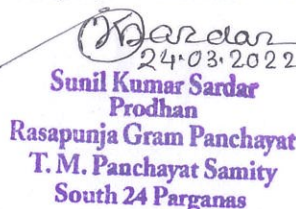 Sardar
24.03.2022
Sunil Kumar Sardar
Prodhan
Rasapunja Gram Panchayat
T. M. Panchayat Samity
South 24 Parganas